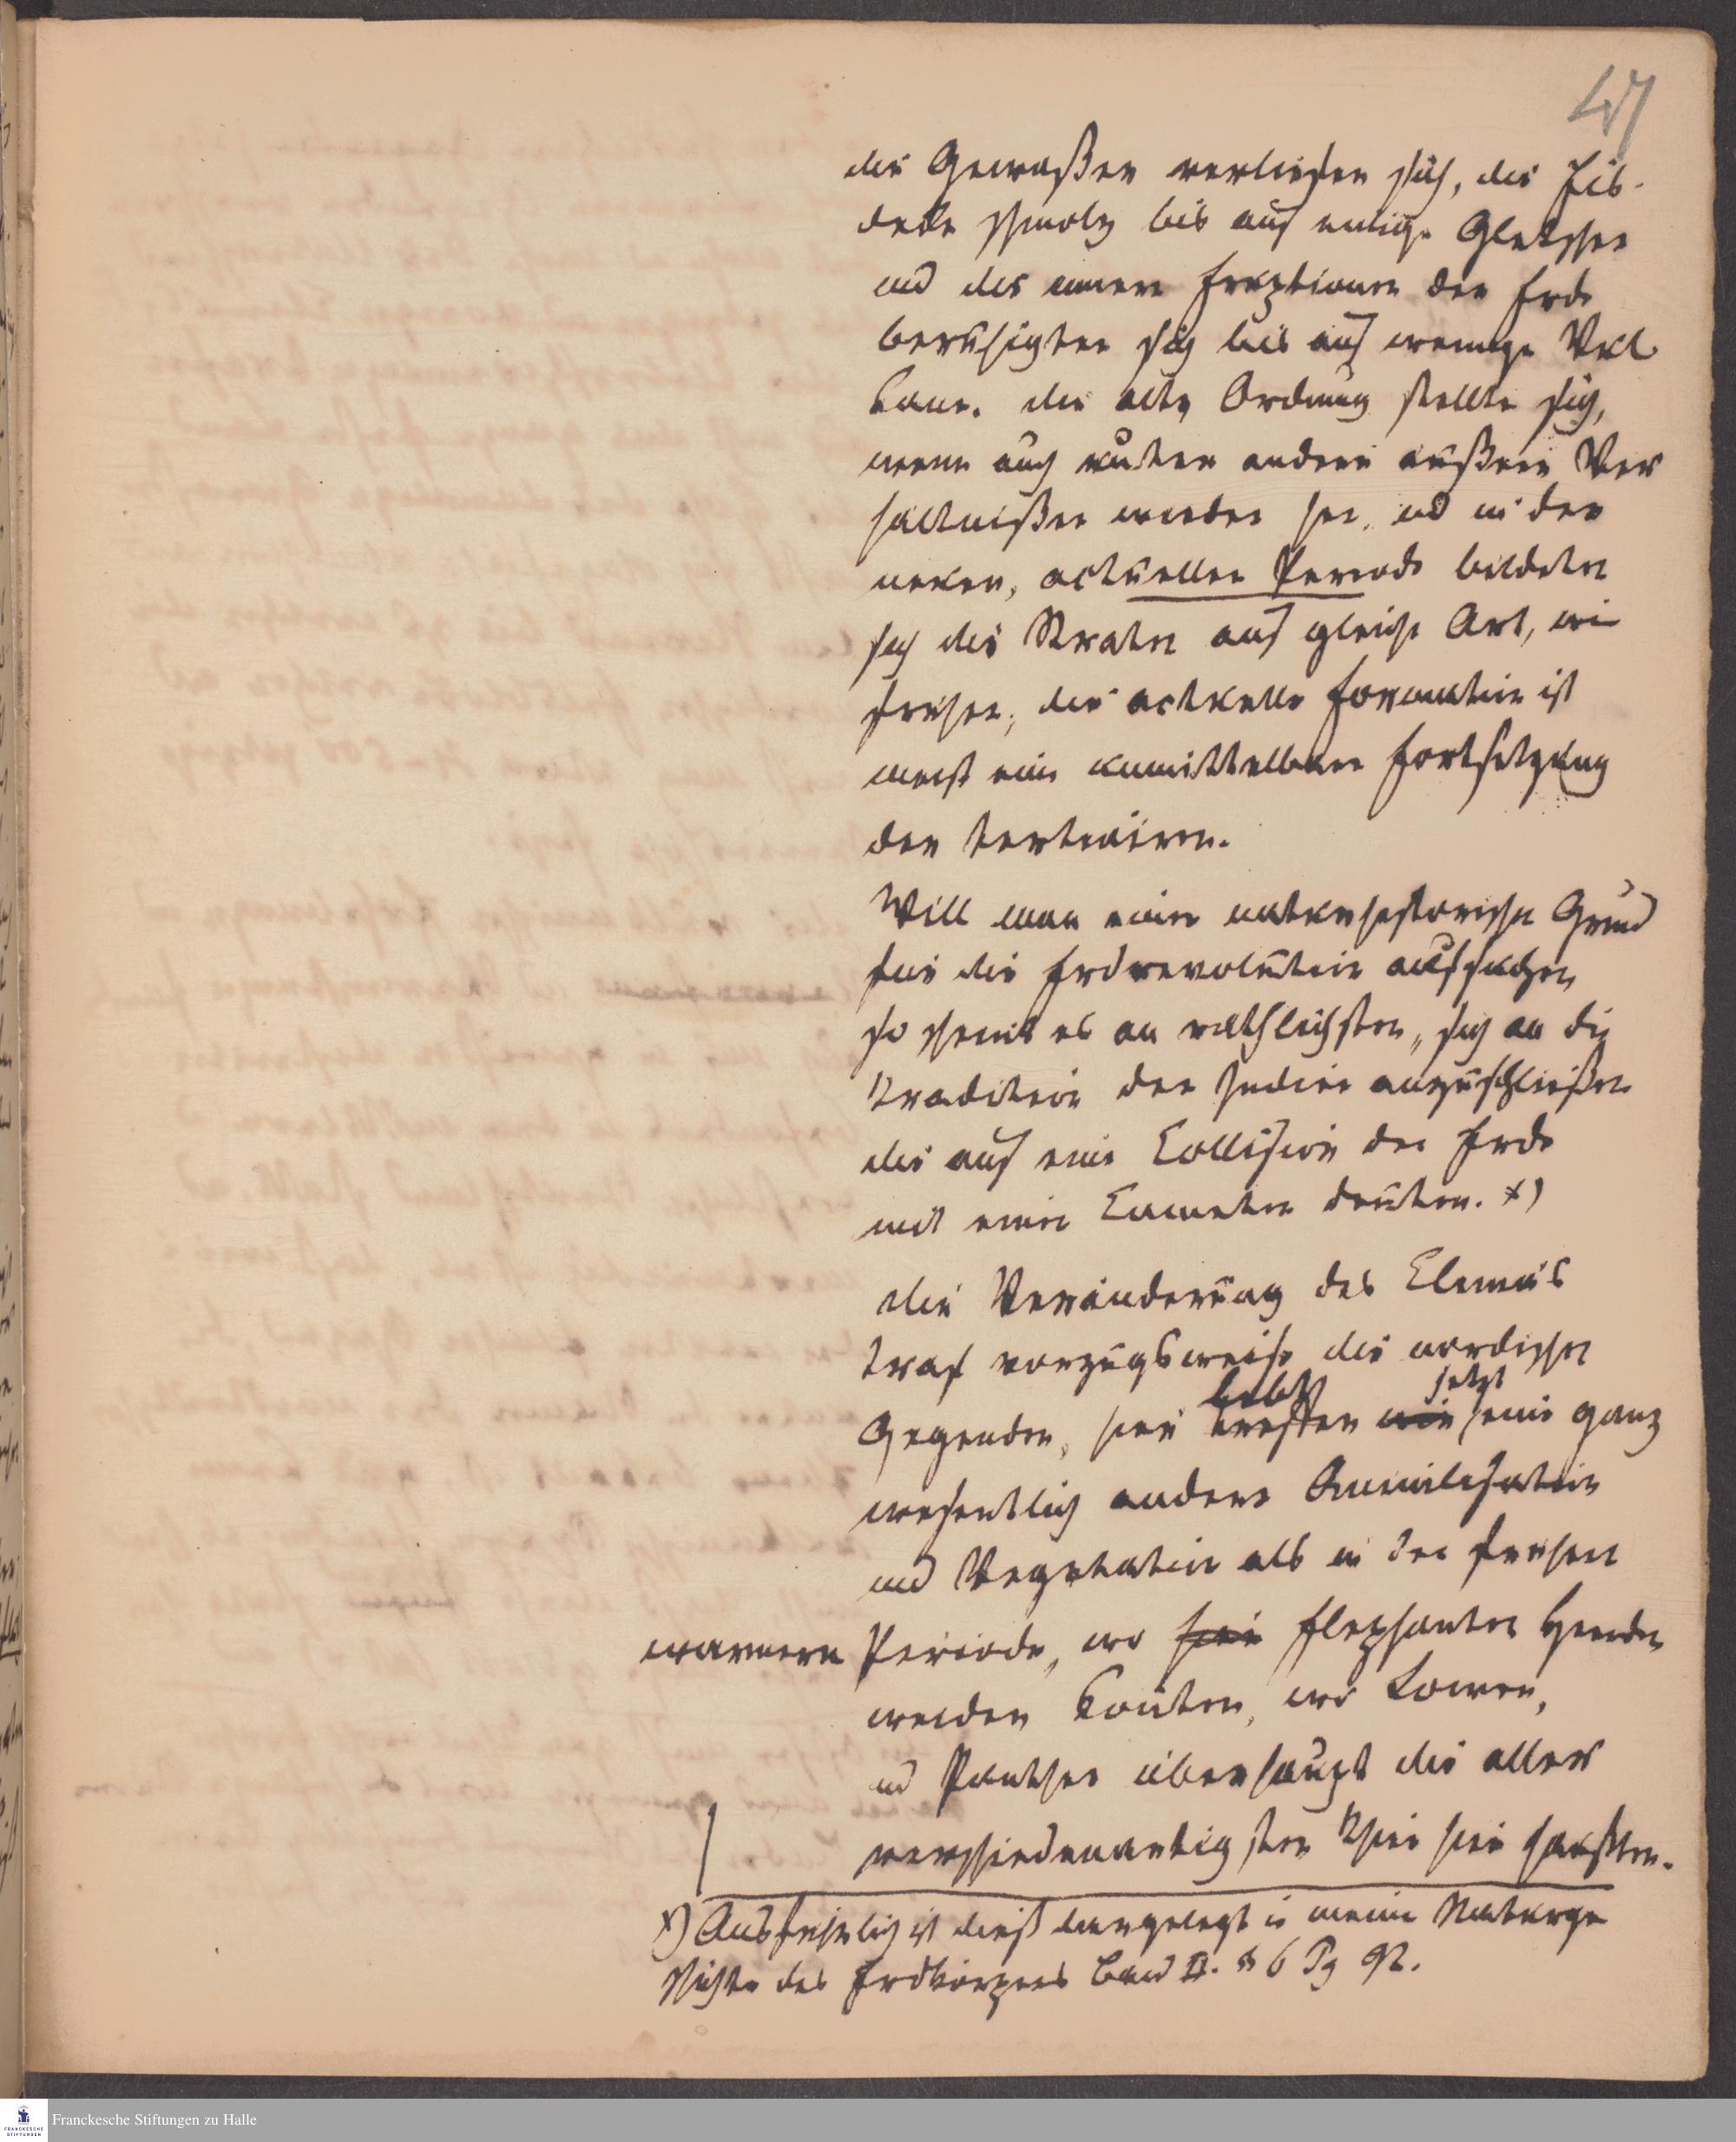 47
die Gewaßer verliefen sich, die Eis-
decke schmolz bis auf einige Gletscher
und die innern Eruptionen der Erde
beruhigten sich bis auf wenige Vul
kane. die alte Ordnung stellte sich,
wenn auch unter andern außern Ver
hältnißen wieder her, und in der
neuen, actuellen Periode bildeten
sich die Straten auf gleiche Art, wie
früher; die actuelle Formation ist
meist eine unmittelbare Fortsetzung
der tertiairen.
Will man einen naturhistorischen Grund
für die Erdrevolution aufsuchen
so scheint es am rathlichsten, sich an die
Tradition der Indier anzuschließen
die auf eine Collision der Erde
mit einem Cometen deuten. x)
die Veränderung des Climas
traf vorzugsweise die nordischen
lebt jetzt
Gegenden, hier treffen wir eine ganz
wesentlich andere Animalisation
und Vegetation als in der frühern
warmern Periode, wo hier Elephanten Heerden
weiden konten, wo Lowen,
und Panther überhaupt die aller
verschiedenartigsten Thiere hier hausten.
x) Ausfuhrlich ist dieß dargelegt in meiner Naturge
schichte des Erdkorpers Band II. § 6 Pg 92.
Franckesche Stiftungen zu Halle
FRANCKESCHE
STIFTUNGEN